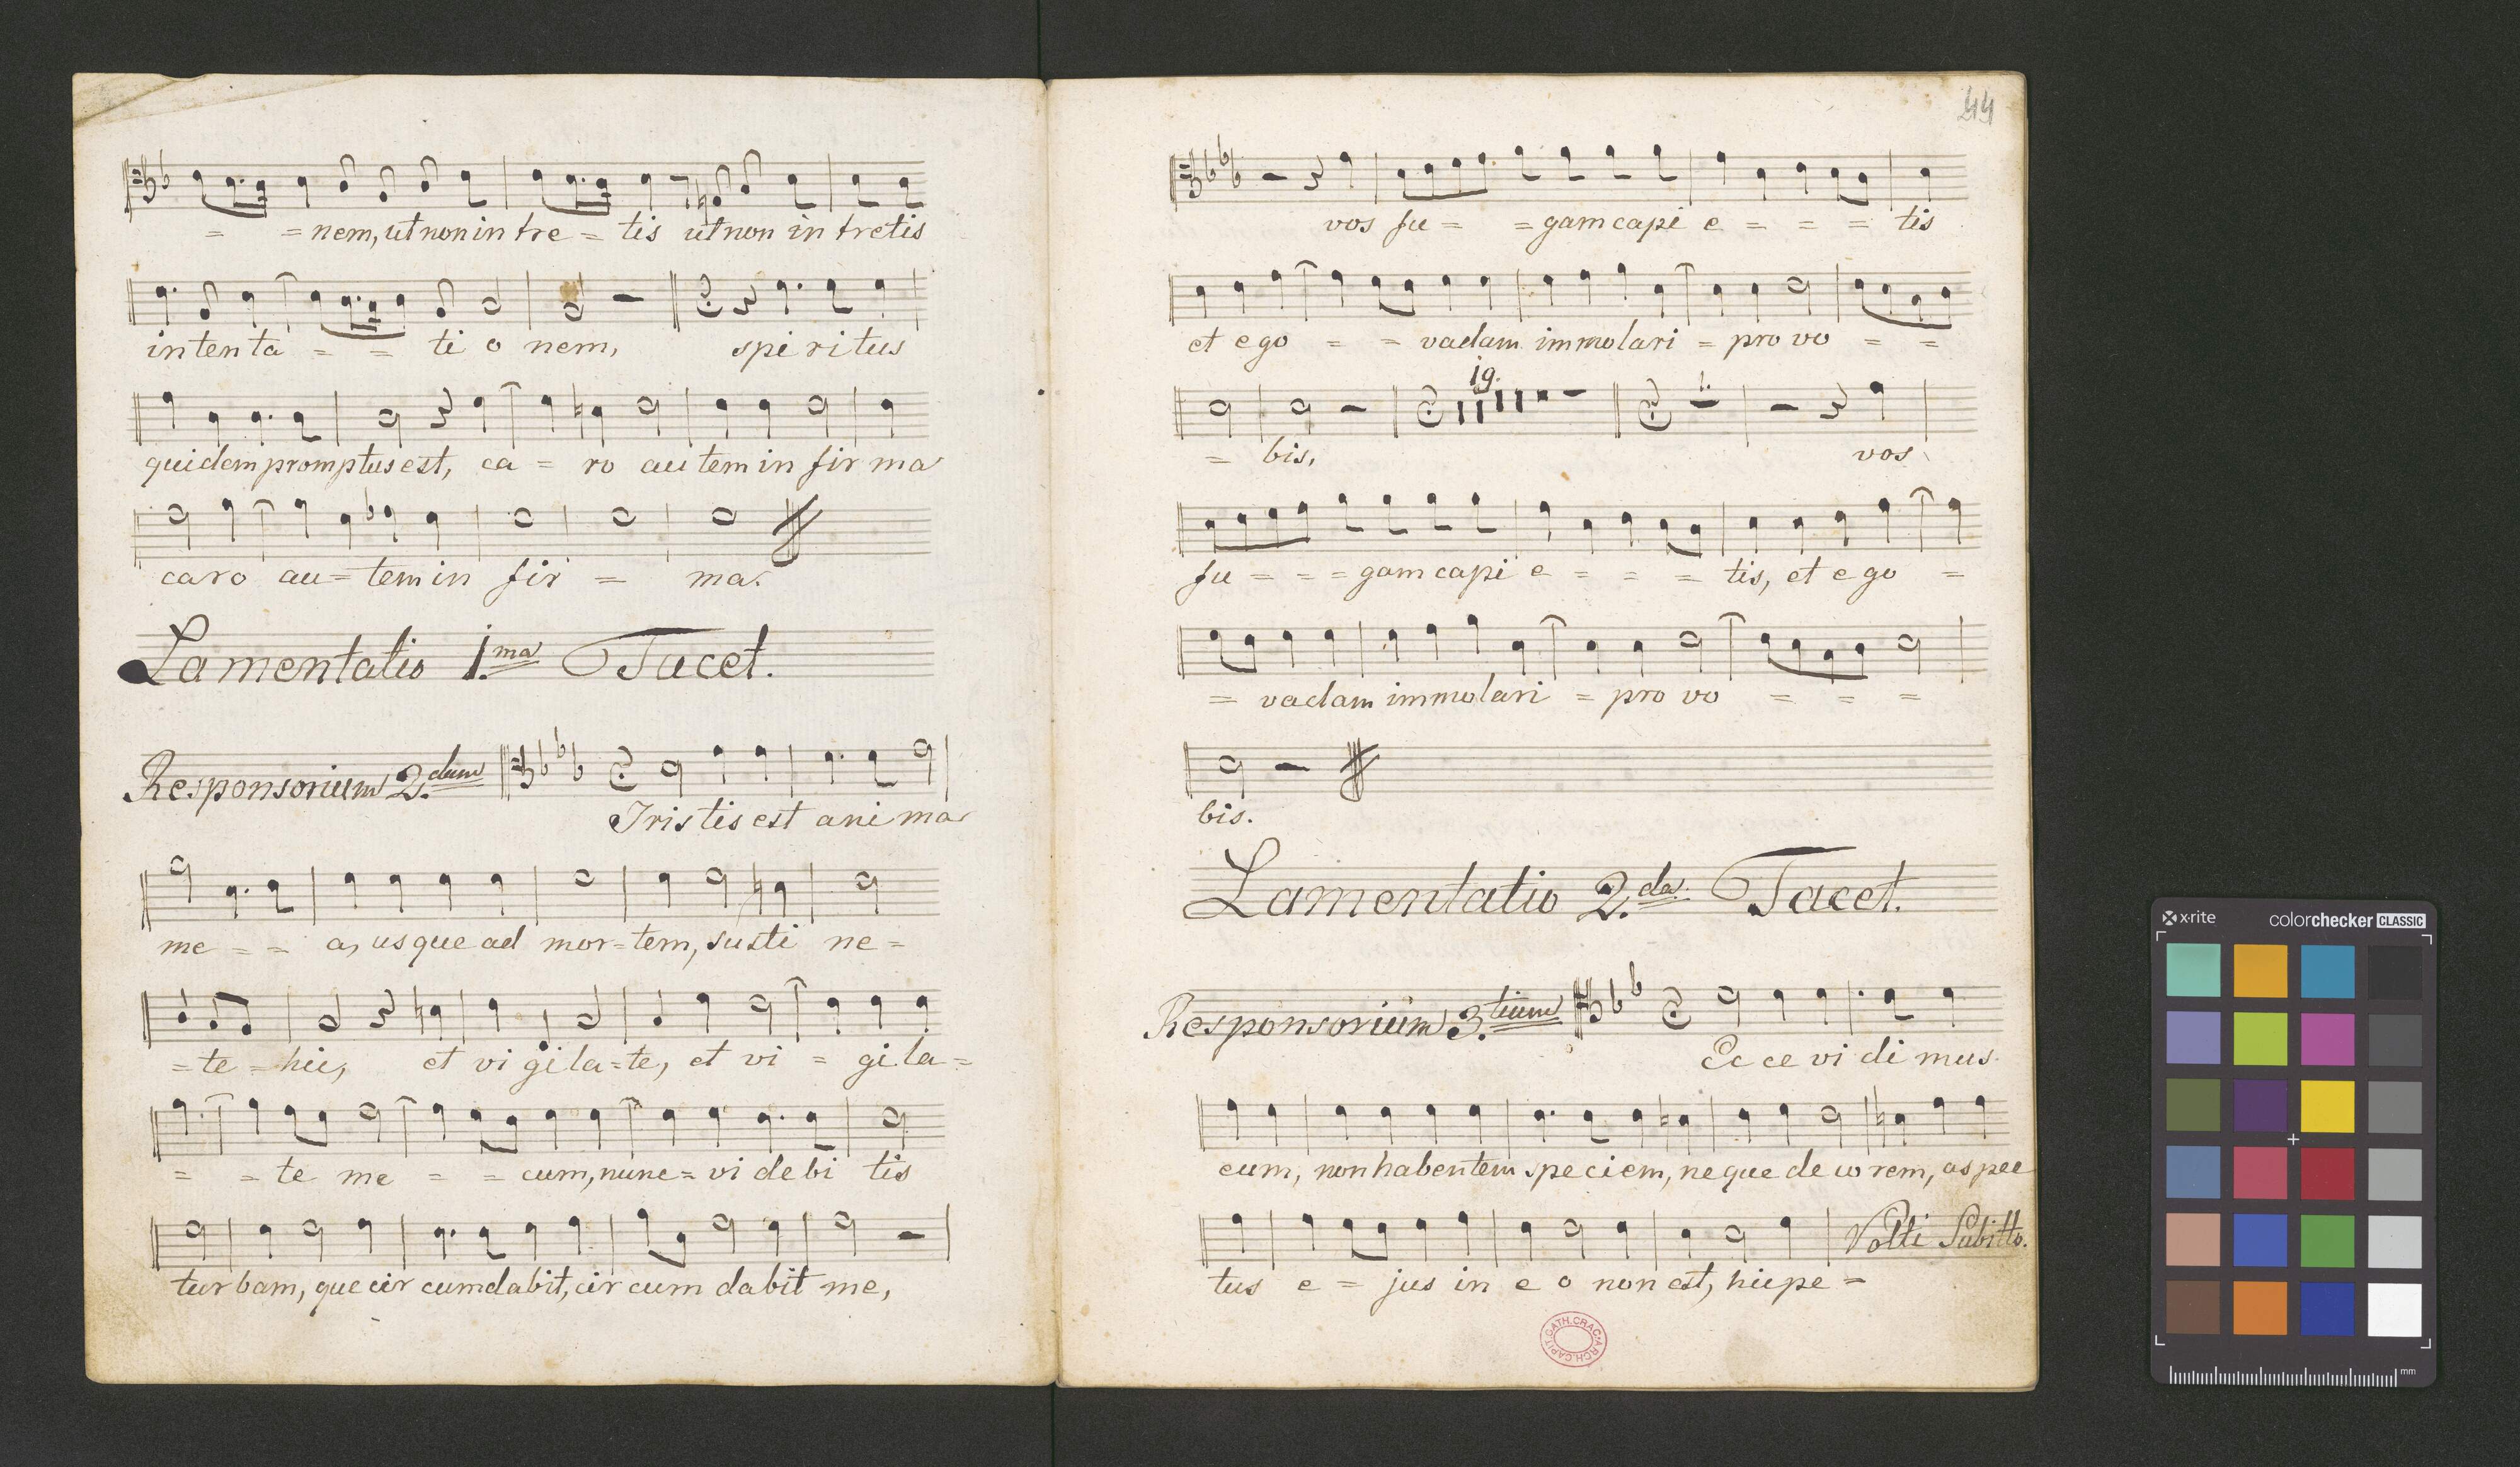 = = nem, ut non in tre = tis ut non in tretis
in ten ta = = ti o nem, spi ri tus
quidem promptus est, ca = ro au tem in fir ma
caro au = tem in fir = ma.
Lamentatio 1.ma Tacet.
Responsorium 2.dum
Tris tis est ani ma
me = = a, usque ad mor = tem, susti ne =
= te = hic, et vi gi la = te, et vi = gi la =
= = te me = = cum, nunc = vi de bi tis
tur bam, que cir cumdabit, cir cum dabit me,
44
vos fu = = gam capi e = = = tis
et ego = = vadam immolari = pro vo = =
19.
1.
= bis, vos
fu = = = gam capi e = = = tis, et ego =
= vadam immolari = pro vo = = =
bis.
Lamentatio 2.da Tacet.
Responsorium 3.tium
Ec ce vi di mus
eum, non habentem speciem, neque deco rem, aspec
Volti Subitto.
tus e = jus in e o non est, hic pe =
ARCH.CAPIT.CATH.CRAC.
x-rite colorchecker CLASSIC
mm